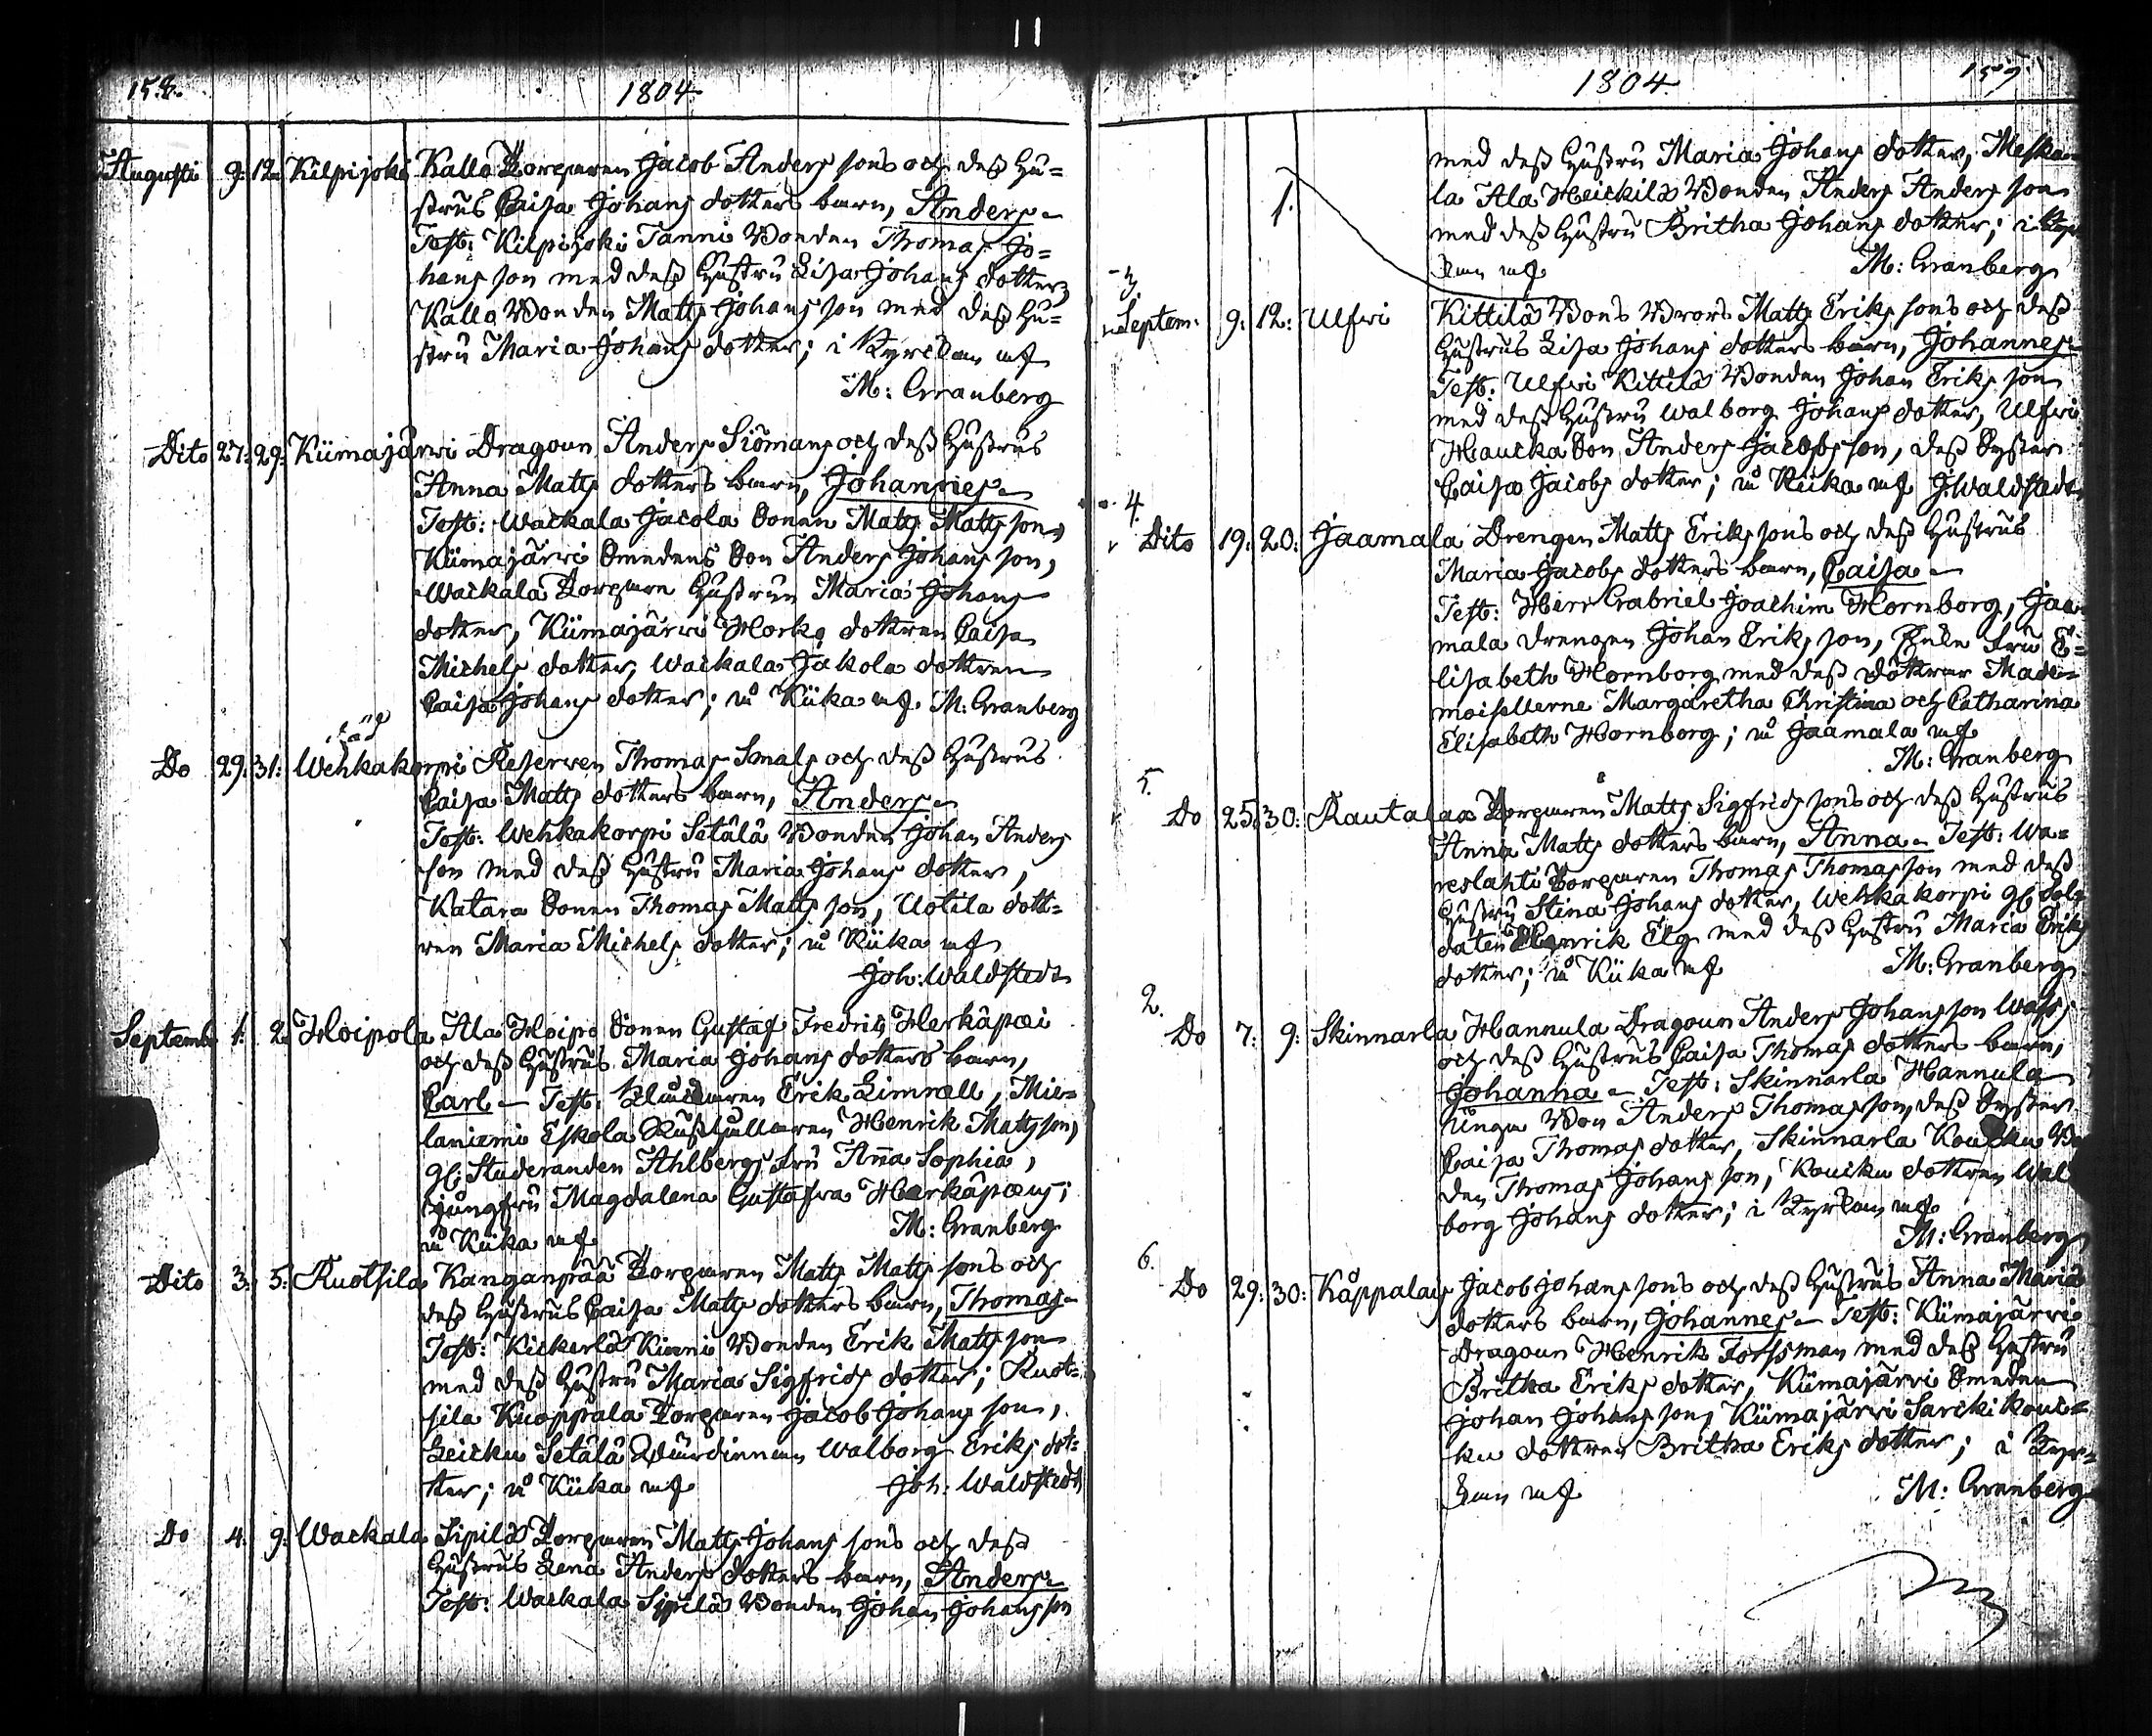 11
158. 1804
Augusti 9: 12 Kilpijoki Kallo Torparen Jacob Anders sons och dess Hu=
strus Caisa Johans dotters barn, Anders
Test: Kilpijoki Tanni Bonden Thomas Jo=
hans son med dess Hustru Lisa Johans dotter
Kallo Bonden Matts Johans son med dess Hu=
stru Maria Johans dotter; i Kyrckan af
M: Granberg
Dito 27: 29: Kiimajärwi Dragoun Anders Siömans och dess Hustrus
Anna Matts dotters barn, Johannes
Test: Wackala Jacola Sonen Matts Matts son,
Kiimajärwi Smedens Son Anders Johans son,
Wackala Torpare Hustrun Maria Johans
dotter, Kiimajärwi Horko dottren Caisa
Michels dotter, Wackala Jakola dottren
Caisa Johans dotter; å Kiika af M: Granberg
Do 29: 31: Wehkakorpi Reserven Thomas Smals och dess Hustrus
Caisa Matts dotters barn, Anders
Test: Wehkakorpi Setälä Bonden Johan Anders
son med dess Hustru Maria Johans dotter,
Katara Sonen Thomas Matts son, Uotila dott=
ren Maria Michels dotter; å Kiika af
Joh: Waldstedt
Septemb 1: 2 Hoipola Ala Hoipo Sonen Gustaf Fredric Herkäpæi
och dess Hustrus Maria Johans dotters barn,
Carl Test: Klockaren Erik Limnell, Mie=
laniemi Eskola Rusthållaren Henrik Matts son,
gl: Studeranden Ahlbergs Fru Anna Sophia,
jungfru Magdalena Gustafva Herkäpæus;
å Kiika af M: Granberg
Dito 3: 5: Ruotsila Kanganpää Torparen Matts Matts sons och
dess Hustrus Caisa Matts dotters barn, Thomas
Test: Kickerlä Kinni Bonden Erik Matts son
med dess Hustru Maria Sigfrids dotter; Ruot=
sila Knoppala Torparen Jacob Johans son,
Leicku Setälä Wärdinnan Walborg Eriks dot=
ter; å Kiika af Joh: Waldstedt
Do 4: 9: Wackala Sipilä Torparen Matts Johans sons och dess
Hustrus Lena Anders dotters barn, Anders
Test: Wackala Sipilä Bonden Johan Johans son
1804 159
med dess Hustru Maria Johans dotter, Meska=
la Ala Heickilä Bonden Anders Anders son
1. med dess Hustru Britha Johans dotter; i Kyr
kan af M: Granberg
3.
Septem: 9: 12: Ulfvi Kittilä Bons Brors Matts Eriks sons och dess
Hustrus Lisa Johans dotters barn, Johannes
Test: Ulfvi Kittilä Bonden Johan Eriks son
med dess Hustru Walborg Johans dotter, Ulfvi
Haucka Son Anders Jacobs son, dess Syster
Caisa Jacobs dotter; å Kiika af J: Waldstedt
4.
Dito 19: 20: Jaamala Drengen Matts Eriks sons och dess Hustrus
Maria Jacobs dotters barn, Caisa
Test: Herr Gabriel Joachim Hornborg, Jaa
mala drengen Johan Eriks son, Enke Fru E=
lisabeth Hornborg med dess döttrar Made=
moisellerne Margaretha Christina och Catharina
Elisabeth Hornborg; å Jaamala af
M: Granberg
5.
Do 25: 30: Rautalax Torparen Matts Sigfrids sons och dess Hustrus
Anna Matts dotters barn, Anna Test: Wa=
reslahti Torparen Thomas Thomas son med dess
Hustru Stina Johans dotter, Wehkakorpi gl: Sol=
daten Henrik Elg med dess Hustru Maria Eriks
dotter; å Kiika af M: Granberg
2.
Do 7: 9: Skinnarla Hannula Dragoun Anders Johans son Wass
och dess Hustrus Caisa Thomas dotters barn,
Johanna Test: Skinnarla Hannula
unga Bon Anders Thomas son, dess Syster
Caisa Thomas dotter, Skinnarla Koucku Bo
den Thomas Johans son, Koucku dottren Wal
borg Johans dotter; i Kyrkan af
M: Granberg
6.
Do 29: 30: Kåppalas Jacob Johans sons och dess Hustrus Anna Maria
dotters barn, Johannes Test: Kiimajärwi
Dragoun Henrik Forssman med dess Hustru
Britha Eriks dotter, Kiimajärwi Smeden
Johan Johans son, Kiimajärwi Sarckikouc=
ku dottren Britha Eriks dotter; i Kyr=
kan af M: Granberg